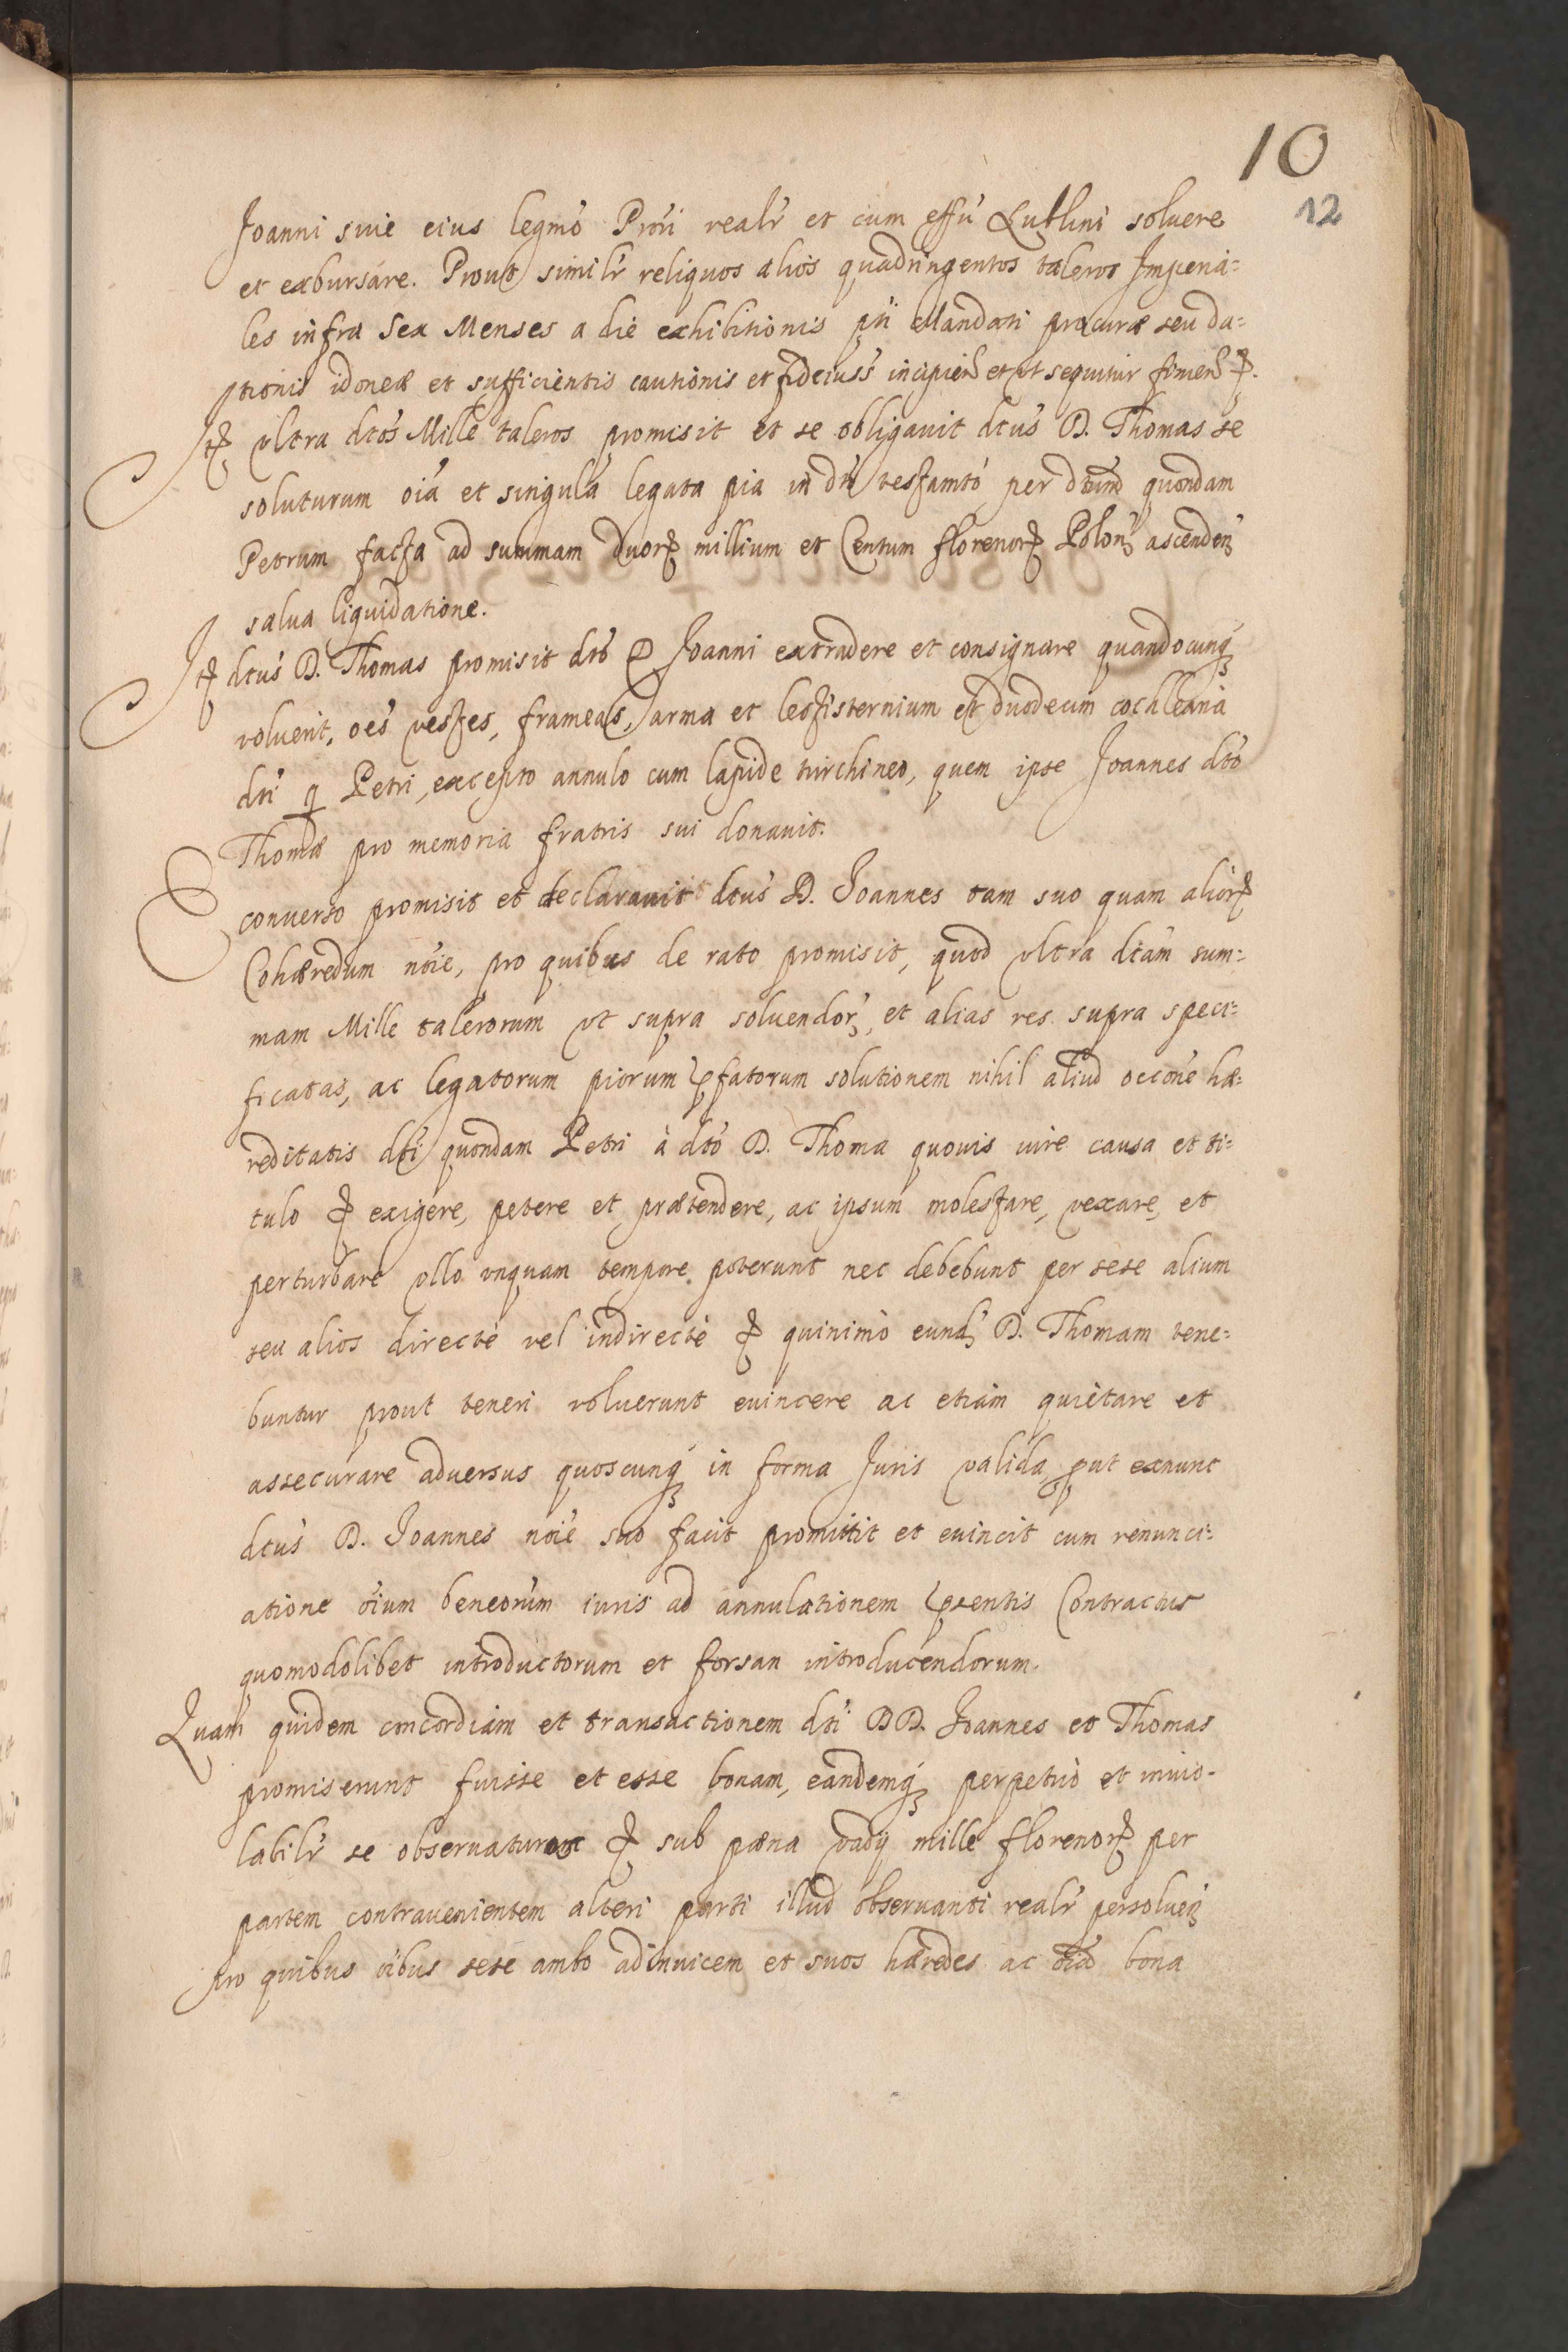 10
12
Joanni siue eius legmo Prori realr et cum effu Lublini soluere
et exbursare. Prout similr reliquos alios quadringentos taleros Imperia=
les infra Sex Menses a die exhibitionis pti Mandati procuræ seu da=
ptionis idoneæ et sufficientis cautionis et fideiuss incipien et ut sequitur finien
ultra dtos Mille taleros promisit et se obligauit dtus D. Thomas se
soluturum oia et singula legata pia in dti testamto per dtum quondam
Petrum facta ad summam duor millium et Centum florenor Polon ascenden
salua liquidatione.
It dtus D. Thomas promisit dto D Joanni extradere et consignare quandocunq
voluerit, oes vestes, frameas, arma et lectisternium et duodecim cochlearia
dti q Petri, excepto annulo cum lapide turchineo, quem ipse Joannes dto
Thomæ pro memoria fratris sui donauit.
E conuerso promisit et declarauit dtus D. Joannes tam suo quam alior
Cohæredum noie, pro quibus de rato promisit, quod ultra dtam sum=
mam Mille talerorum ut supra soluendor, et alias res supra speci=
ficatas, ac legatorum piorum pfatorum solutionem nihil aliud occone hæ=
reditatis dti quondam Petri à dto D. Thoma quouis iure causa et ti=
tulo exigere, petere et prætendere, ac ipsum molestare, vexare, et
perturbare ullo unquam tempore poterunt nec debebunt per sese alium
seu alios directè vel indirectè quinimò eund D. Thomam tene=
buntur prout teneri voluerunt euincere ac etiam quietare et
assecurare aduersus quoscunq in forma Juris valida put exnunc
dtus D. Joannes noie suo facit promittit et euincit cum renunci=
atione oium beneorum iuris ad annulationem psentis Contractus
quomodolibet introductorum et forsan introducendorum.
Quam quidem concordiam et transactionem dti DD. Joannes et Thomas
promiserunt fuisse et esse bonam, eandemq perpetuò et inuio-
labilr se obseruaturos sub pæna vadij mille florenor per
partem contrauenientem alteri parti illud obseruanti realr persoluen
pro quibus oibus sese ambo adinuicem et suos hæredes ac oia bona